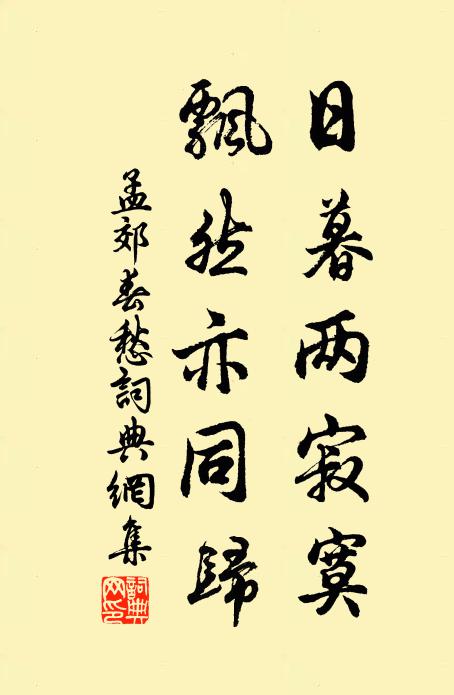 日暮两寂寞
飘然亦同歸
孟郊春愁詞典網集
詞典网印